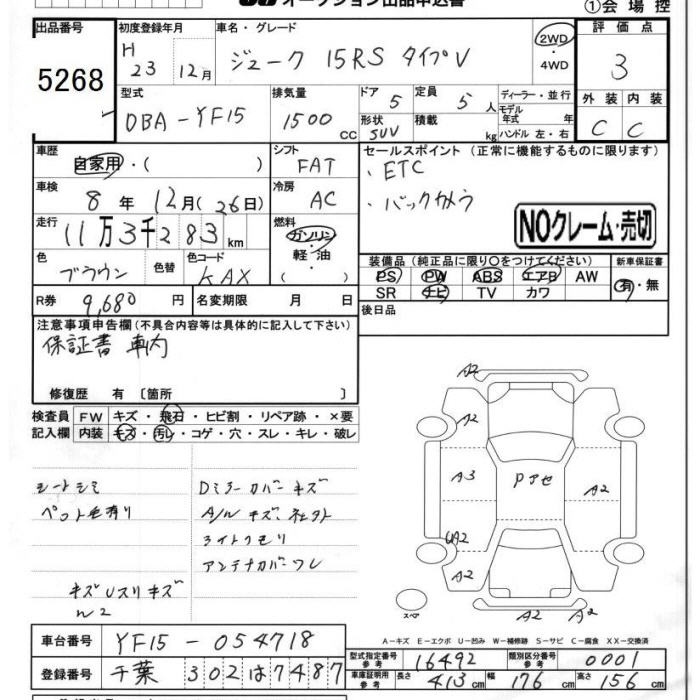 オークション出品申込書
①会場控
出品番号
5268
初度登録年月
H 23 12月
車名・グレード
ジューク 15RS タイプV
2WD・4WD
評価点
3
外装 内装
C C
型式
DBA-YF15
排気量
1500 CC
ドア 5
形状 SUV
定員 5人
積載 kg
ディーラー・並行
モデル年式 年
ハンドル 左・右
車歴
自家用・( )
シフト
FAT
セールスポイント (正常に機能するものに限ります)
・ETC
・バックカメラ
NOクレーム・売切
車検
8年 12月(26日)
冷房
AC
走行
11万3千283km
燃料
ガソリン・軽油
( )
色
ブラウン
色替
色コード
KAX
装備品 (純正品に限り○をつけてください)
PS PW ABS エアB AW
SR ナビ TV カワ
新車保証書
有・無
R券 9,680円
名変期限 月 日
後日品
注意事項申告欄(不具合内容等は具体的に記入して下さい)
保証書 車内
修復歴 有 〔箇所 〕
検査員記入欄
FW キズ・飛石・ヒビ割・リペア跡・×要
内装 キズ・汚レ・コゲ・穴・スレ・キレ・破レ
シートシミ
ペット毛有り
Dミラーカバーキズ
ライトクモリ
アンテナカバーワレ
A2
A2
A3
Pアセ
A2
UA2
A2
A2
A2
スペア
A-キズ E-エクボ U-凹み W-補修跡 S-サビ C-腐食 XX-交換済
車台番号 YF15-054718
登録番号 千葉 302 は 7487
型式指定番号参考 16492
類別区分番号参考 0001
車庫証明用参考 長さ 413cm 幅 176cm 高さ 156cm